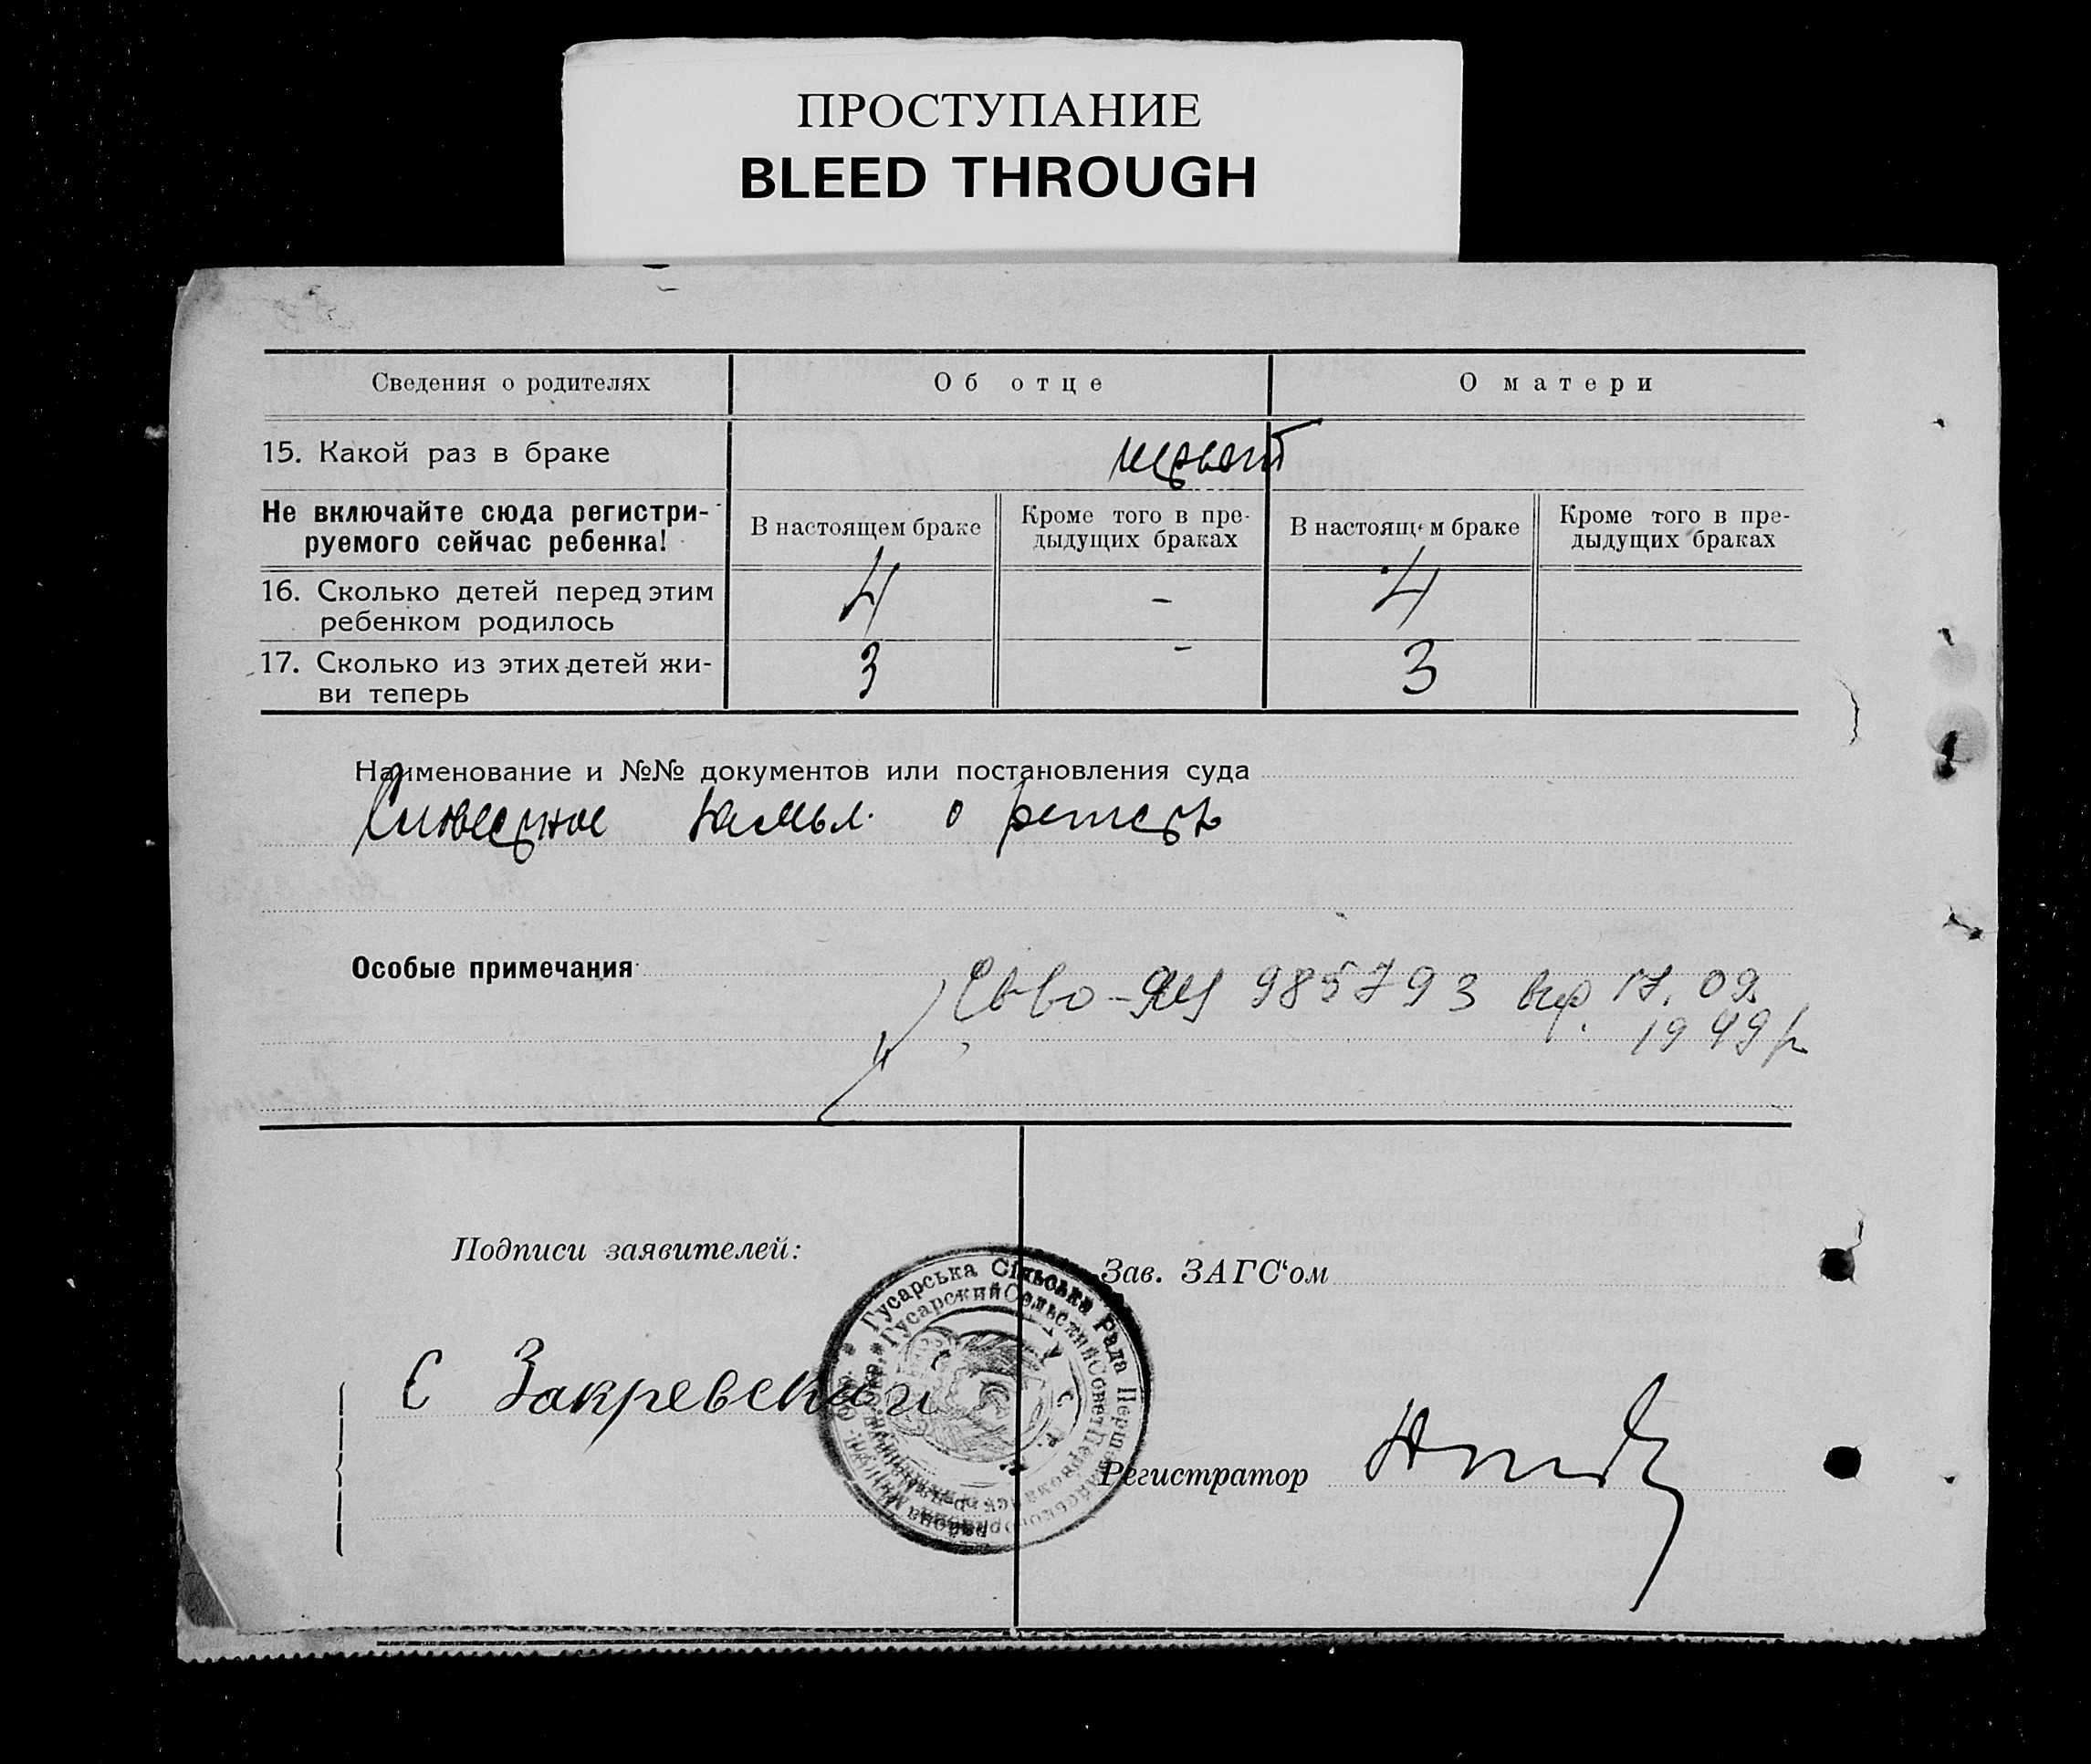 ПРОСТУПАНИЕ
BLEED THROUGH
Сведения о родителях Об отце О матери
15. Какой раз в браке
Не включайте сюда регистри-
руемого сейчас ребенка!
В настоящем браке
Кроме того в пре-
дыдущих браках
В настоящем браке
Кроме того в пре-
дыдущих браках
16. Сколько детей перед этим
ребенком родилось 4 - 4
17. Сколько из этих детей жи-
ви теперь 3 - 3
Наименование и №№ документов или постановления суда
Словесное о
Особые примечания
Св-во - ЯЦ 985793 17.09.
1949 р
Подписи заявителей:
Зав. ЗАГС'ом
Гусарська Сільська Рада
Гусарский Сельский Совет
Закревский
Регистратор